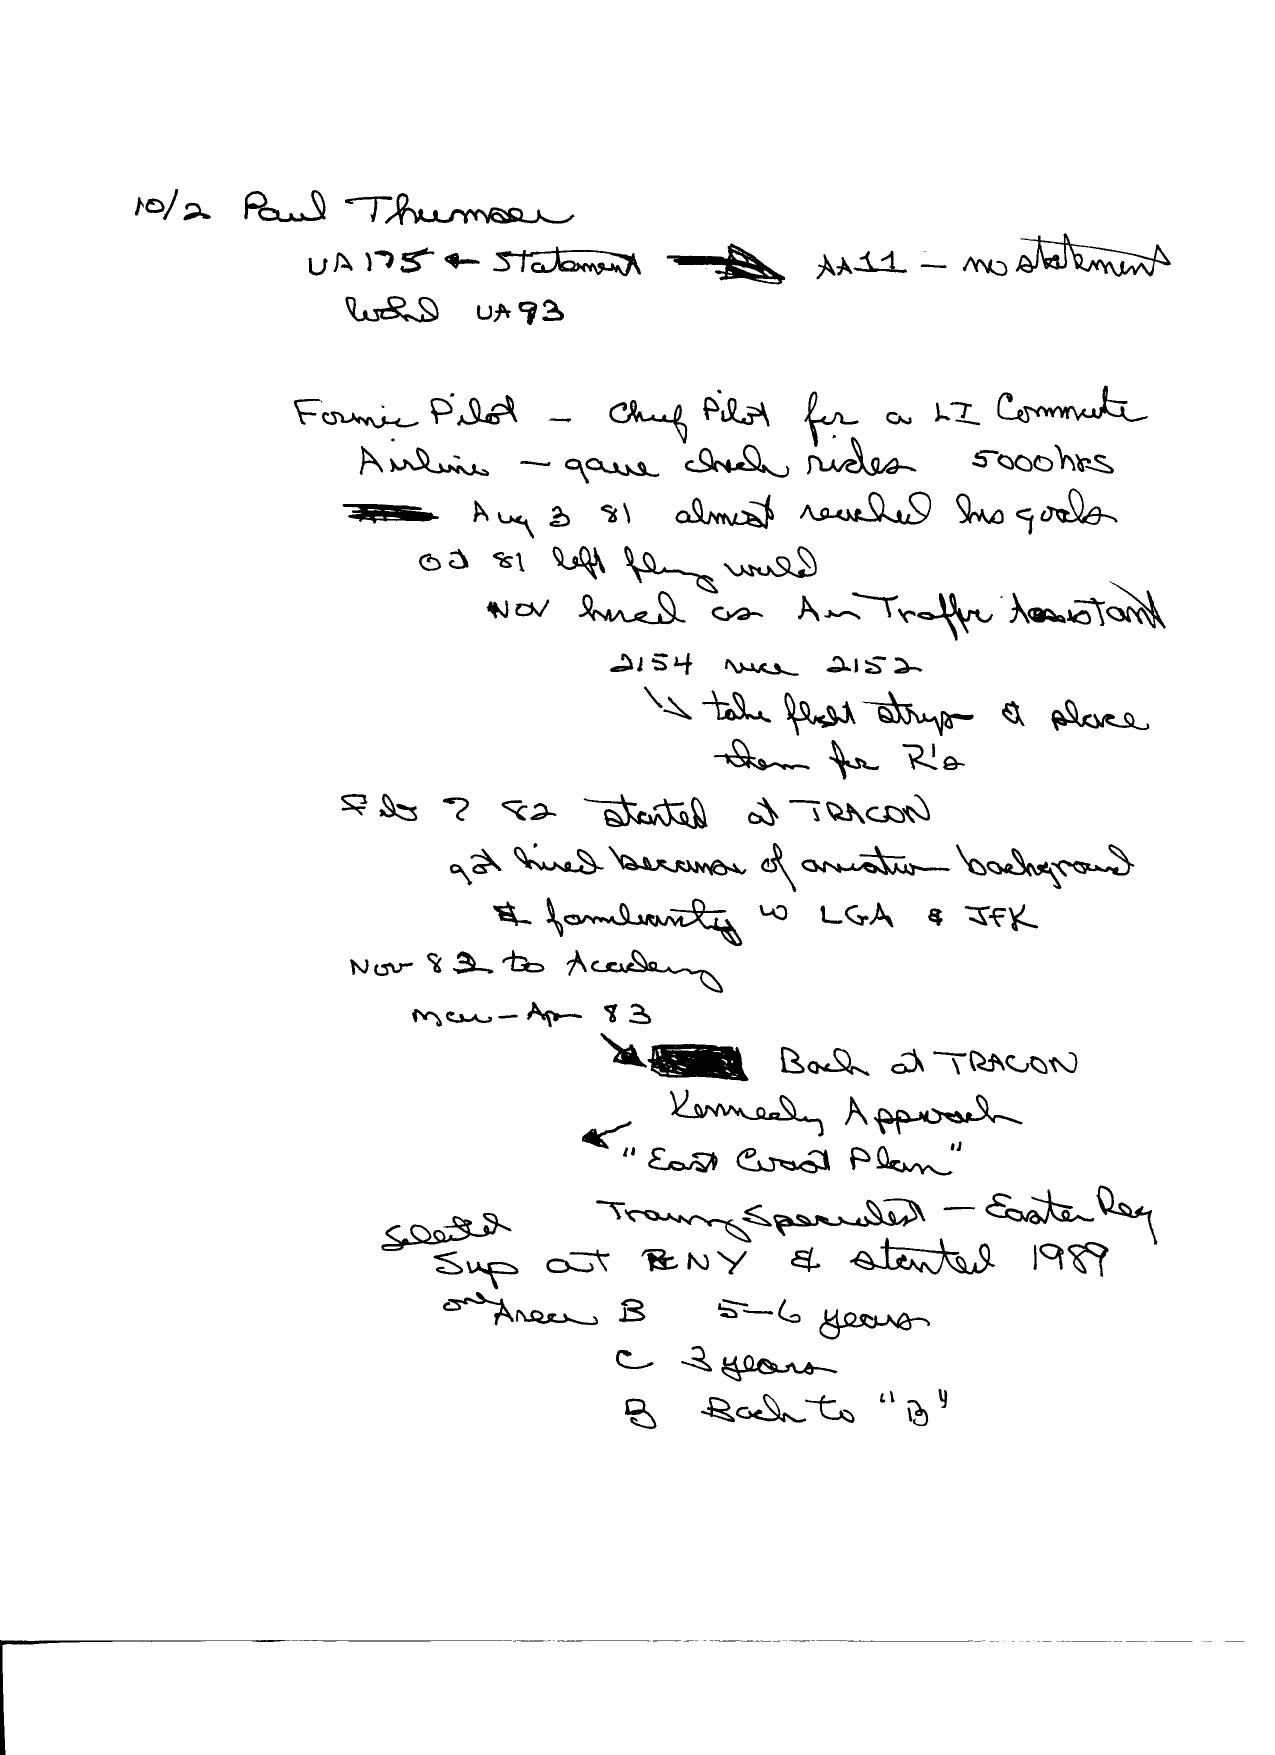 10/2 Paul Thumser
UA175 ← Statement → AA11 – no statement
UA93
Former Pilot – Chief Pilot for a LI Commute
Airline – gave check rides 5000hrs
Aug 3 81 almost reached his goals
Oct 81 left flying world
NOV hired as Air Traffic Assistant
2154 2152
↘ take flight strips & place
them for R's
Feb ? 82 started at TRACON
got hired because of aviation background
& familiarity w LGA & JFK
Nov 82 to Academy
Mar – Apr 83
Back at TRACON
Kennedy Approach
"East Coast Plan"
Traing Specialist – Easter Reg
Selected
Sup at NY & started 1989
one Area B 5–6 years
C 3 years
B Back to "B"